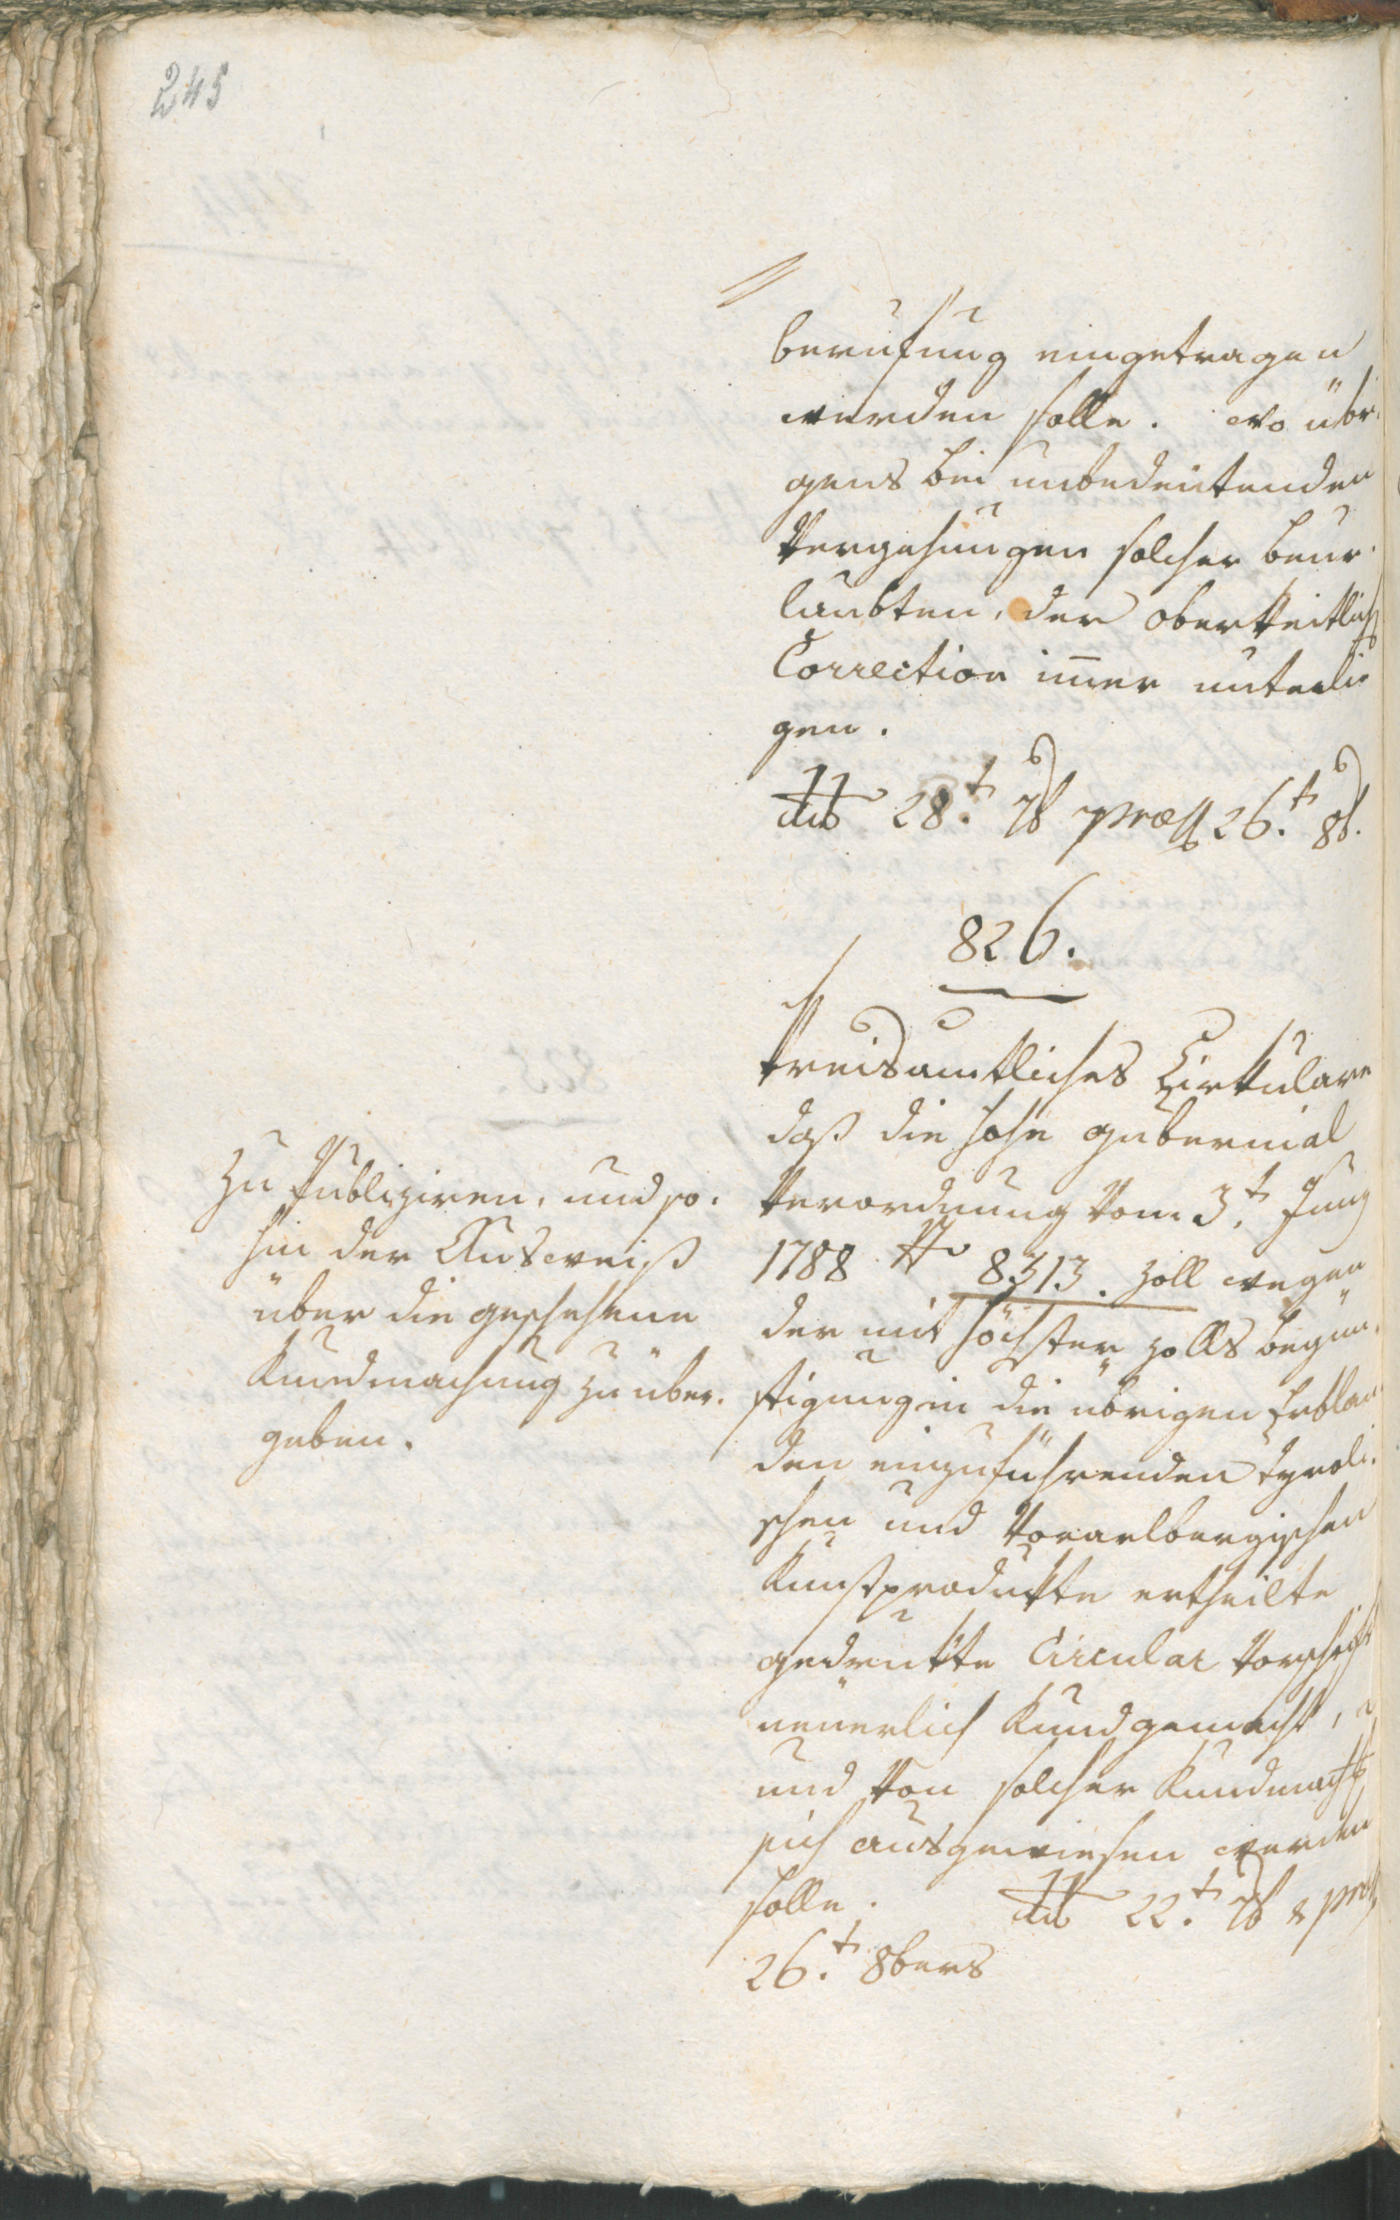 245
berufung eingetragen
werden solle. wo übr
gens bei unbedeutenden
Vergehungen solcher beur
laubten, der oberkeitlich
Correction im̄er unterlie
gen.
ddo 28.t 7b praes 26.t 8b.
826.
Kreisamtliches Cirkulare
daß die hohe gubernial
Verordnung vom 3.t Juny
1788 No 8313. Zoll wegen
der mit höchster Zolls begün
stigung in die übrigen Erblan
den einzuführenden tyroli
schen und Vorarlbergischen
Kunstprodukte ertheilte
gedrukte Circular Vorschrift
neuerlich kundgemacht,
und von solcher Kundmach
sich ausgewiesen werden
solle. ddo 22.t 7b & praes
26.t 8bers
Zu Publiziren, und so
hin der Ausweiß
über die geschehene
Kundmachung zu über
geben.